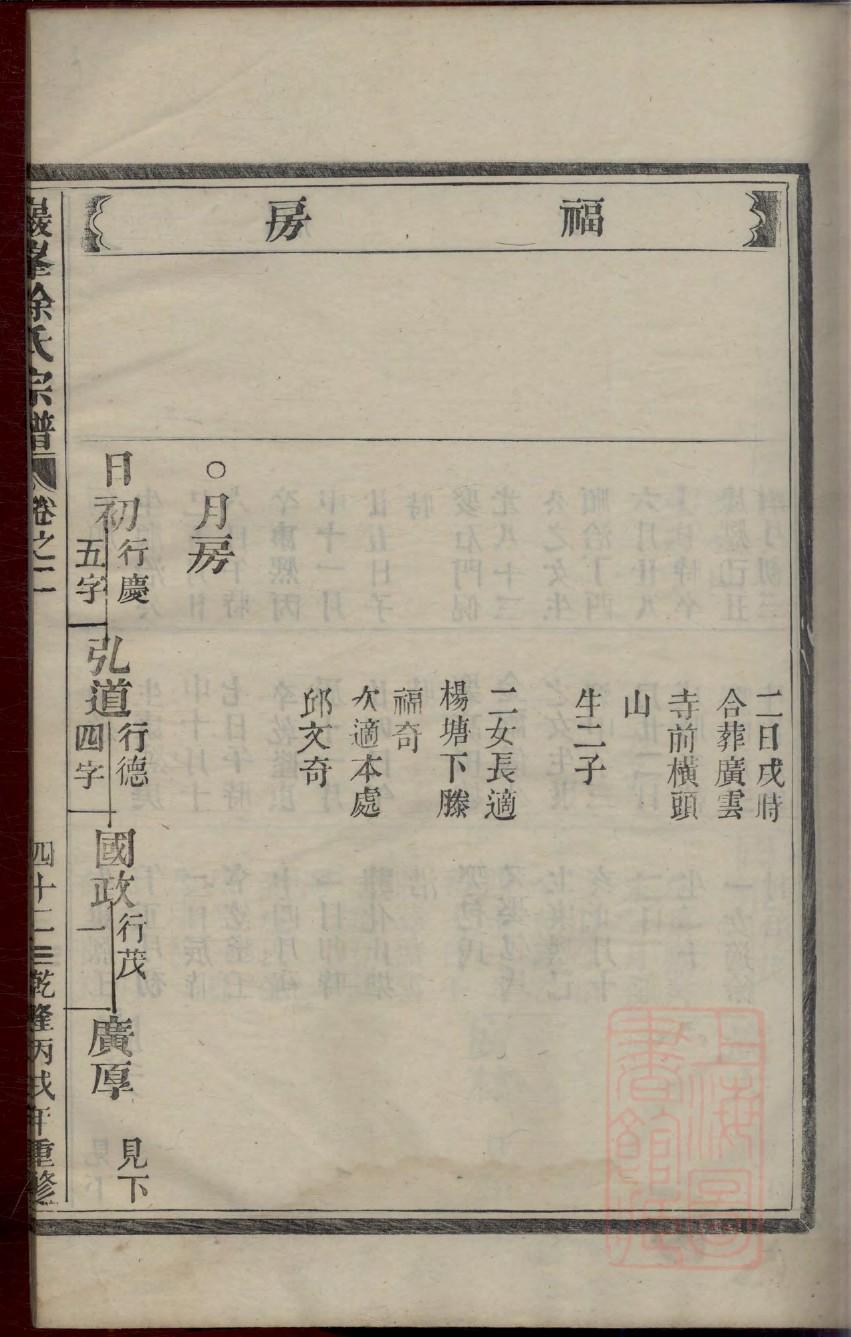 福房
二日戌時
合葬廣雲
寺前橫頭
山
生二子
二女長適
楊塘下滕
福奇
次適本處
邱文奇
○月房
日初行慶五字
弘道行德四字
國政行茂一
廣厚見下
巖峯徐氏宗譜
卷之二
四十二
乾隆丙戌年重修
上海圖書館藏